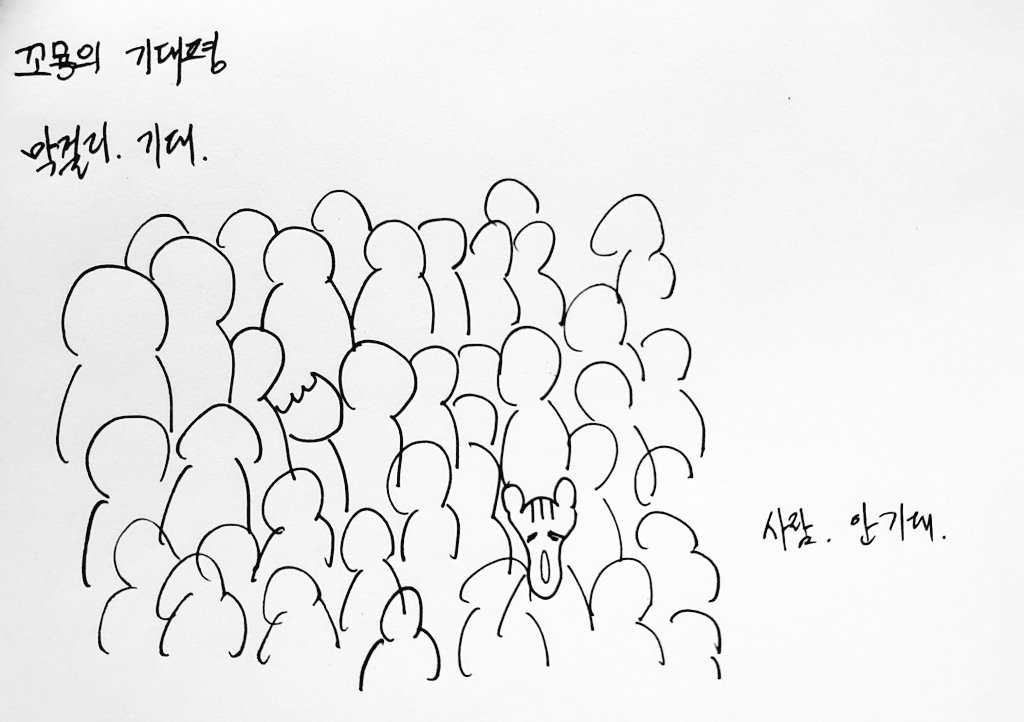 꼬몽의 기대평
막걸리. 기대.
사람. 안기대.